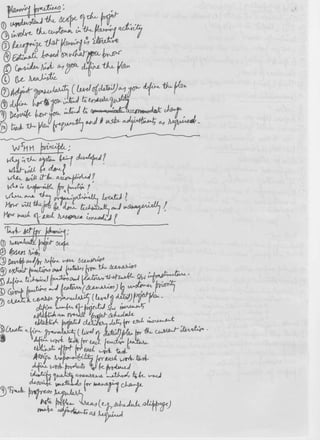 Planning practices:
① understand the scope of the project
② involve the customer in the planning activity
③ Recognize that planning is iterative
④ Estimate based on what you know
⑤ Consider risk as you define the plan
⑥ Be realistic
⑦ Adjust granularity (level of detail) as you define the plan
⑧ define how you intend to ensure quality
⑨ Describe how you intend to accommodate change
⑩ Track the plan frequently and make adjustments as required.
W5HH principle:
Why is the system being developed?
What will be done?
When will it be accomplished?
Who is responsible for function?
Where are they organizationally located?
How will the job be done technically and managerially?
How much of each resource is needed?
Task set for planning:
① reevaluate project scope
② Assess risks
③ Develop and/or refine user scenarios
④ extract functions and features from the scenarios
⑤ define technical functions and features that enable s/w infrastructure.
⑥ Group functions and features (scenarios) by customer priority
⑦ create a coarse granularity (level of detail) project plan.
define number of projected s/w increments
establish an overall project schedule
establish projected delivery dates for each increment
⑧ Create a fine granularity (level of detail) plan for the current iteration.
define work tasks for each function feature
estimate effort for each work task
Assign responsibility for each work task
define work products to be produced
identify quality assurance methods to be used
describe methods for managing change
⑨ Track progress regularly
note problem areas (e.g. schedule slippage)
make adjustments as required